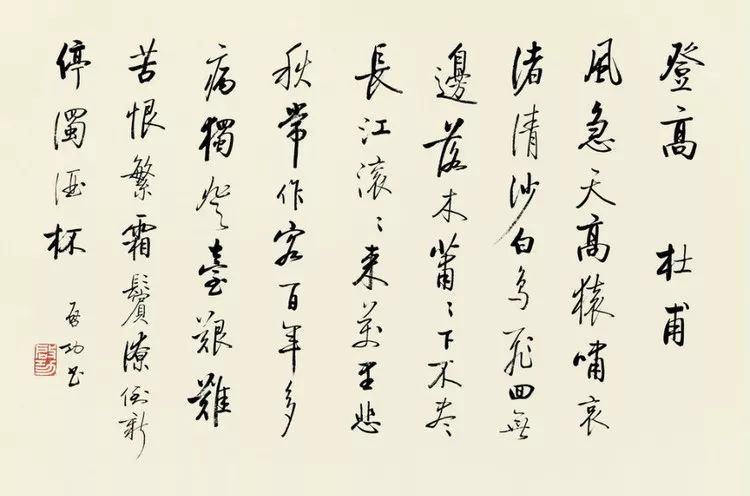 登高 杜甫
風急天高猿嘯哀
渚清沙白鳥飛囬無
邊落木蕭〻下不盡
長江滚〻來萬里悲
秋常作客百年多
病獨登臺艱難
苦恨繁霜鬢潦倒新
停濁酒杯
啟功書